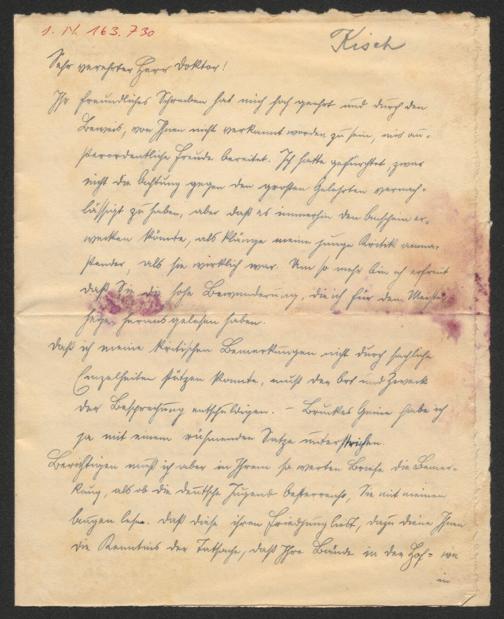 I. N. 163.730
Kisch
Sehr verehrter Herr Doktor!
Ihr freundliches Schreiben hat mich hoch geehrt und durch den
Beweis, von Ihnen nicht verkannt worden zu sein, mir au-
ßerordentliche Freude bereitet. Ich hatte gefürchtet, zwar
nicht die Achtung gegen den großen Gelehrten vernach-
lässigt zu haben, aber daß es immerhin den Anschein er-
wecken könnte, als klänge meine junge Kritik anma-
ßender, als sie wirklich war. Um so mehr bin ich erfreut
daß Sie die hohe Bewunderung, die ich für den Meister
hege, herausgelesen haben.
Daß ich meine kritischen Bemerkungen nicht durch sachliche
Einzelheiten stützen konnte, muß der Ort und Zweck
der Besprechung entschuldigen. –             habe ich
ja mit einem rühmenden Satze unterstrichen.
Berichtigen muß ich aber in Ihrem so werten Briefe die Bemer-
kung, als ob die deutsche Jugend Oesterreichs, Sie mit meinen
Augen lese. Daß diese ihren                    , dazu diene Ihnen
die Kenntnis der Tatsache, daß Ihre Bände in der Hof- wie
in